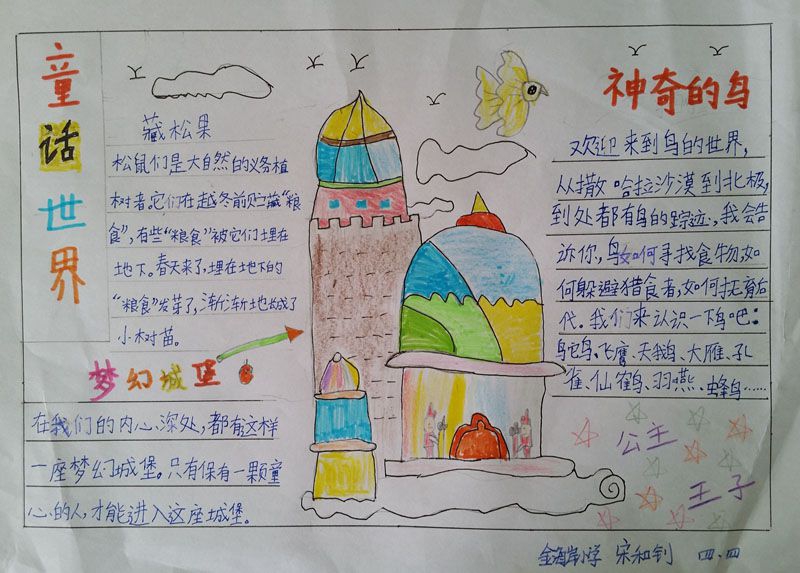 童话世界
藏松果
松鼠们是大自然的义务植
树者。它们在越冬前贮藏“粮
食”，有些“粮食”被它们埋在
地下。春天来了，埋在地下的
“粮食”发芽了，渐渐地长成了
小树苗。
梦幻城堡
在我们的内心深处，都有这样
一座梦幻城堡。只有保有一颗童
心的人，才能进入这座城堡。
神奇的鸟
欢迎来到鸟的世界，
从撒哈拉沙漠到北极，
到处都有鸟的踪迹，我会告
诉你，鸟如何寻找食物，如
何躲避猎食者，如何抚育后
代。我们来认识一下鸟吧：
鸵鸟、飞鹰、天鹅、大雁、孔
雀、仙鹤、羽燕、蜂鸟……
公主
王子
金海岸小学 宋和钊 四、四